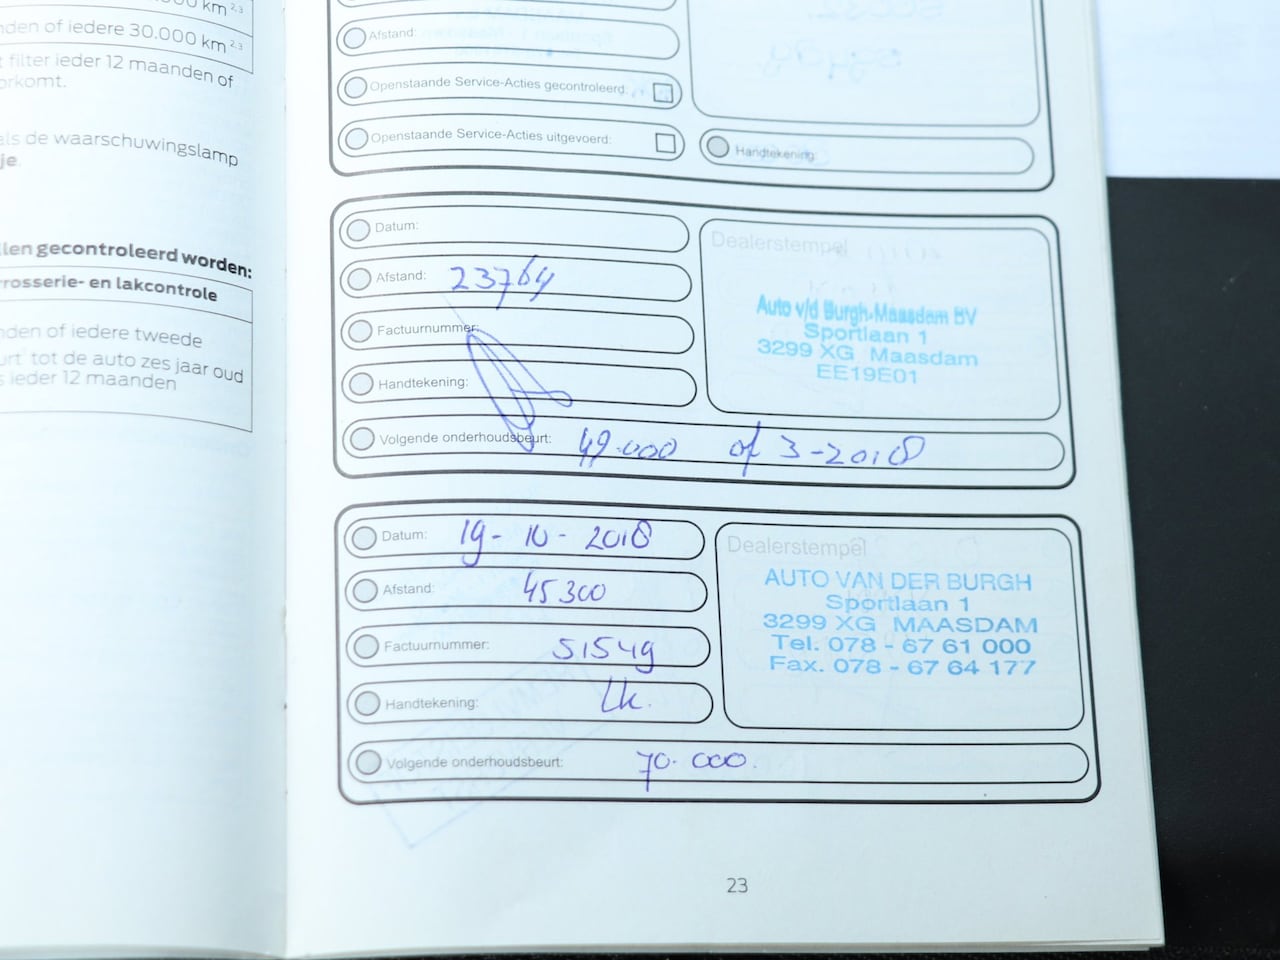 km 2,3
nden of iedere 30.000 km 2,3
t filter ieder 12 maanden of
orkomt.
als de waarschuwingslamp
je.
llen gecontroleerd worden:
rrosserie- en lakcontrole
nden of iedere tweede
urt tot de auto zes jaar oud
s ieder 12 maanden
Afstand:
Openstaande Service-Acties gecontroleerd:
Openstaande Service-Acties uitgevoerd:
Handtekening:
Datum:
Afstand: 23764
Factuurnummer:
Handtekening:
Volgende onderhoudsbeurt: 49.000 of 3-2018
Dealerstempel
Auto v/d Burgh-Maasdam BV
Sportlaan 1
3299 XG Maasdam
EE19E01
Datum: 19-10-2018
Afstand: 45300
Factuurnummer: 51549
Handtekening:
Volgende onderhoudsbeurt: 70.000.
Dealerstempel
AUTO VAN DER BURGH
Sportlaan 1
3299 XG MAASDAM
Tel. 078 - 67 61 000
Fax. 078 - 67 64 177
23